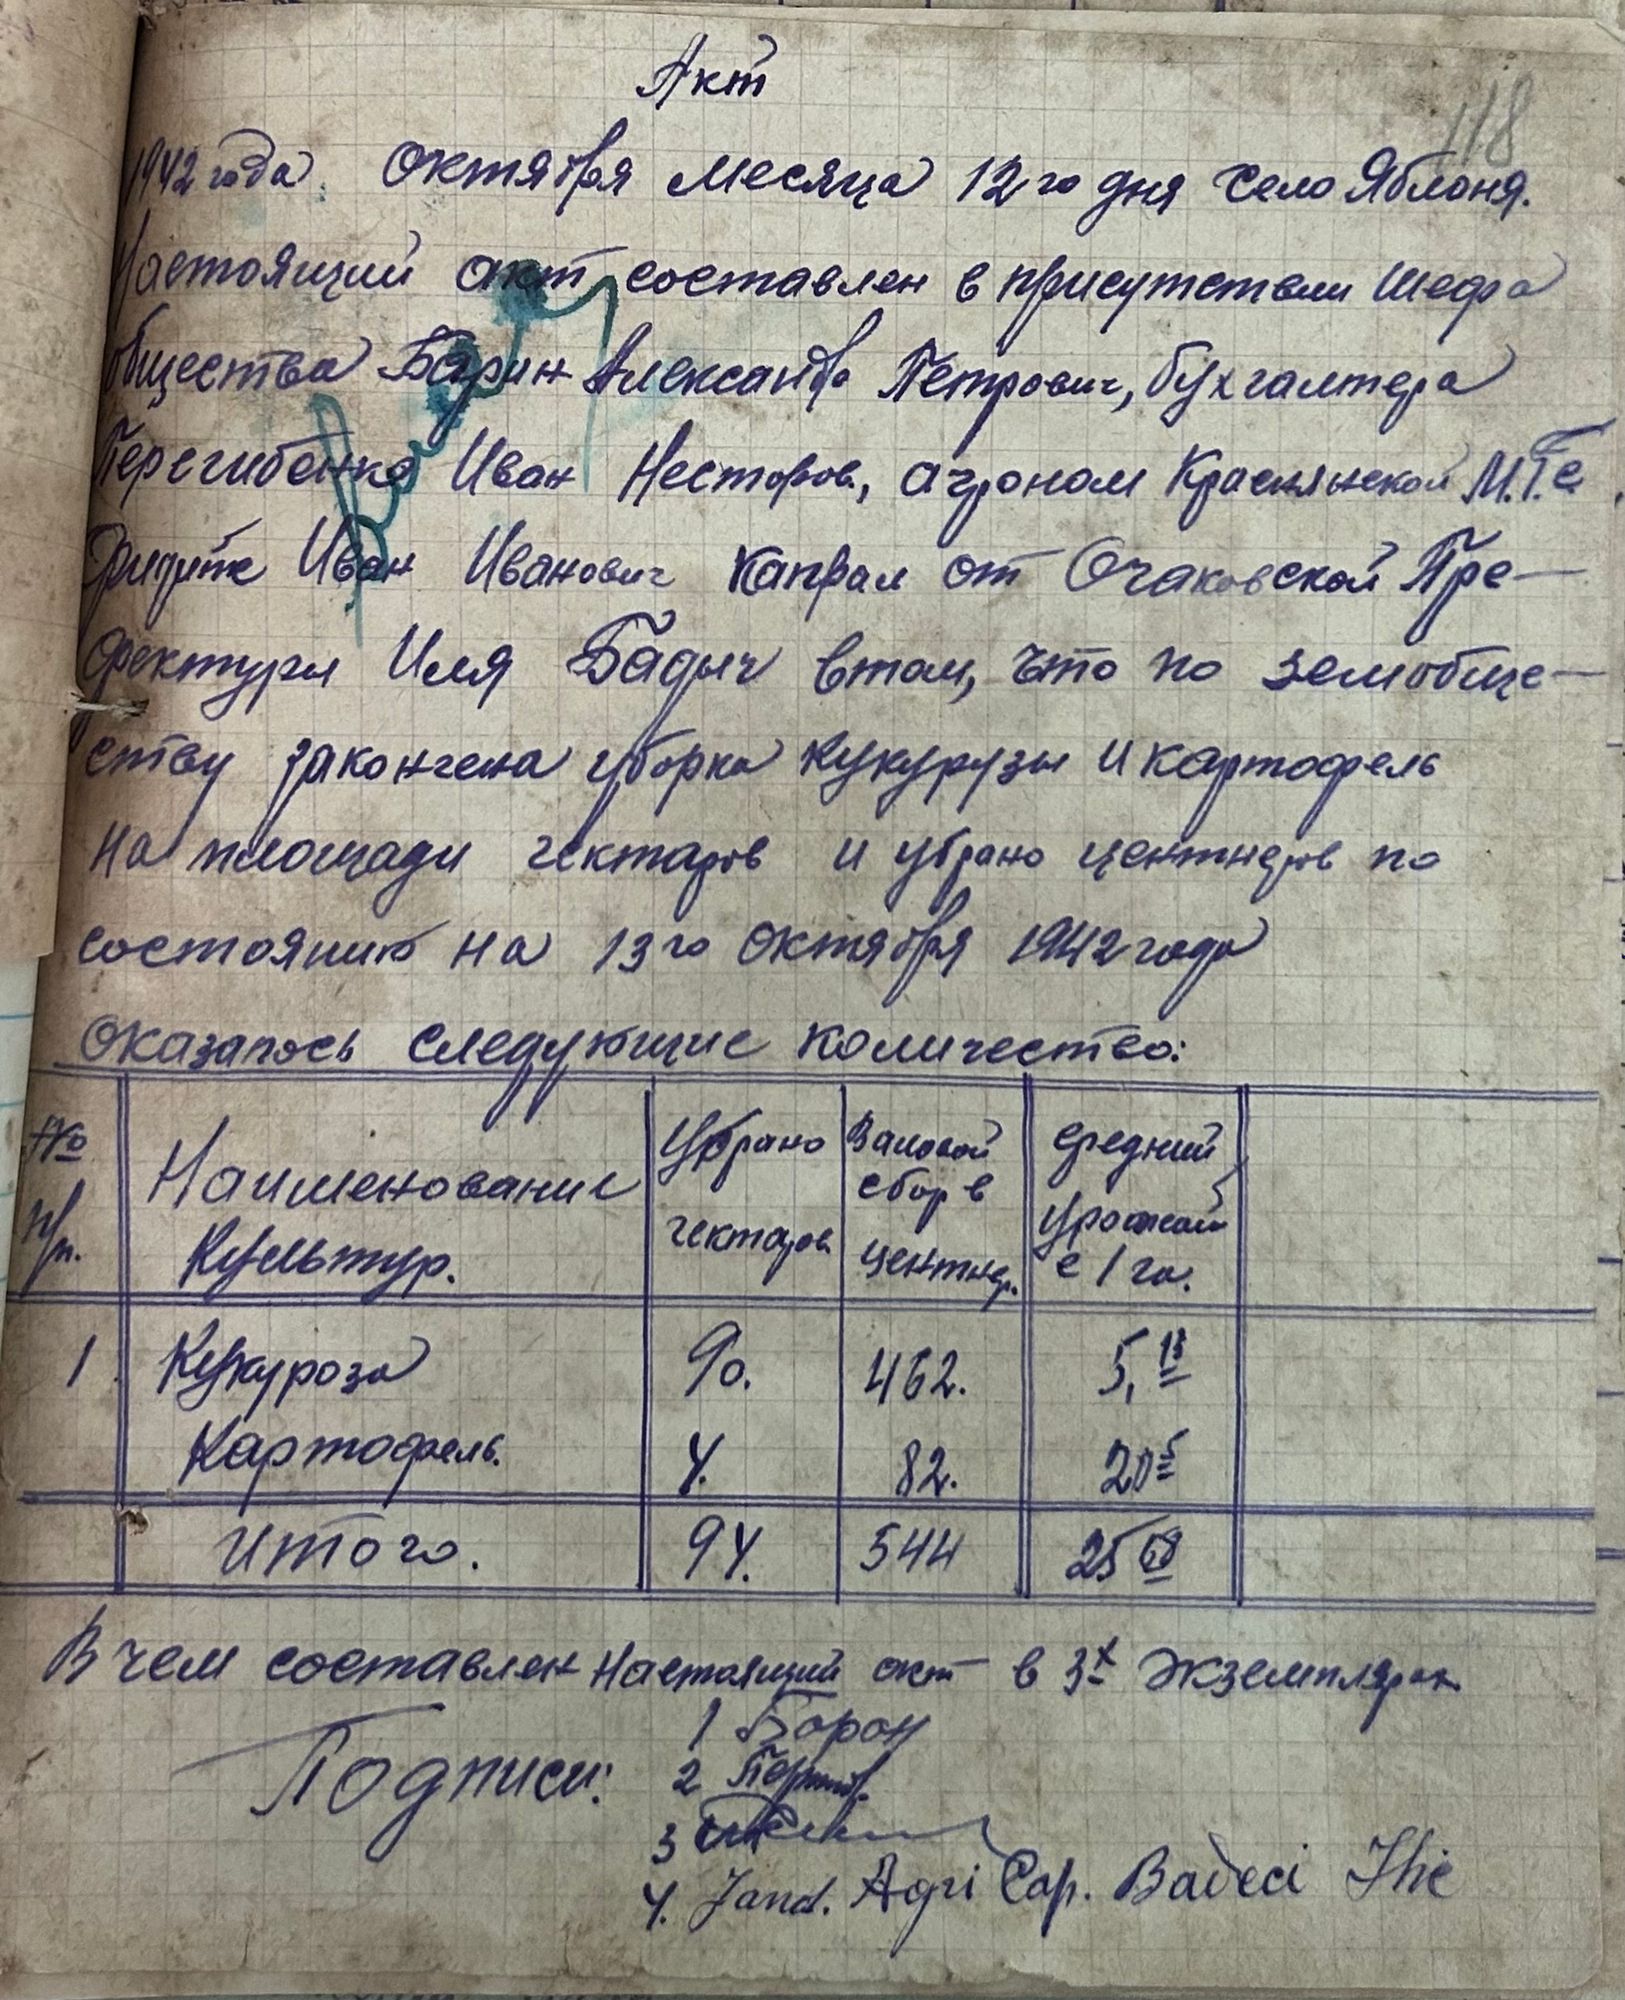 118
Акт
1942 года Октября месяца 12 го дня село Яблоня.
Настоящий акт составлен в присутствии шефа
общества Барин Александр Петрович, бухгалтера
Перегибенко Иван Несторов., агроном Краснянской М.Т.С.
Иван Иванович капрал от Очаковской Пре-
фектуры Иля Бадыч в том, что по земобще-
ству закончена уборка кукурузы и картофель
на площади гектаров и убрано центнеров по
состоянию на 13 го октября 1942 года
оказалось следующие количество:
№ п/п. Наименование Культур. Убрано гектаров Валовой сбор в центнер. Средний урожай с 1 га.
1 Кукуроза 90. 462. 5,13
Картофель. 4. 82. 20 5
Итого. 94. 544 25
В чем составлен настоящий акт в 3х экземплярах
Подписи: 1 Барон
2
3
4. Jand. Agri Cap. Badeci Ilie